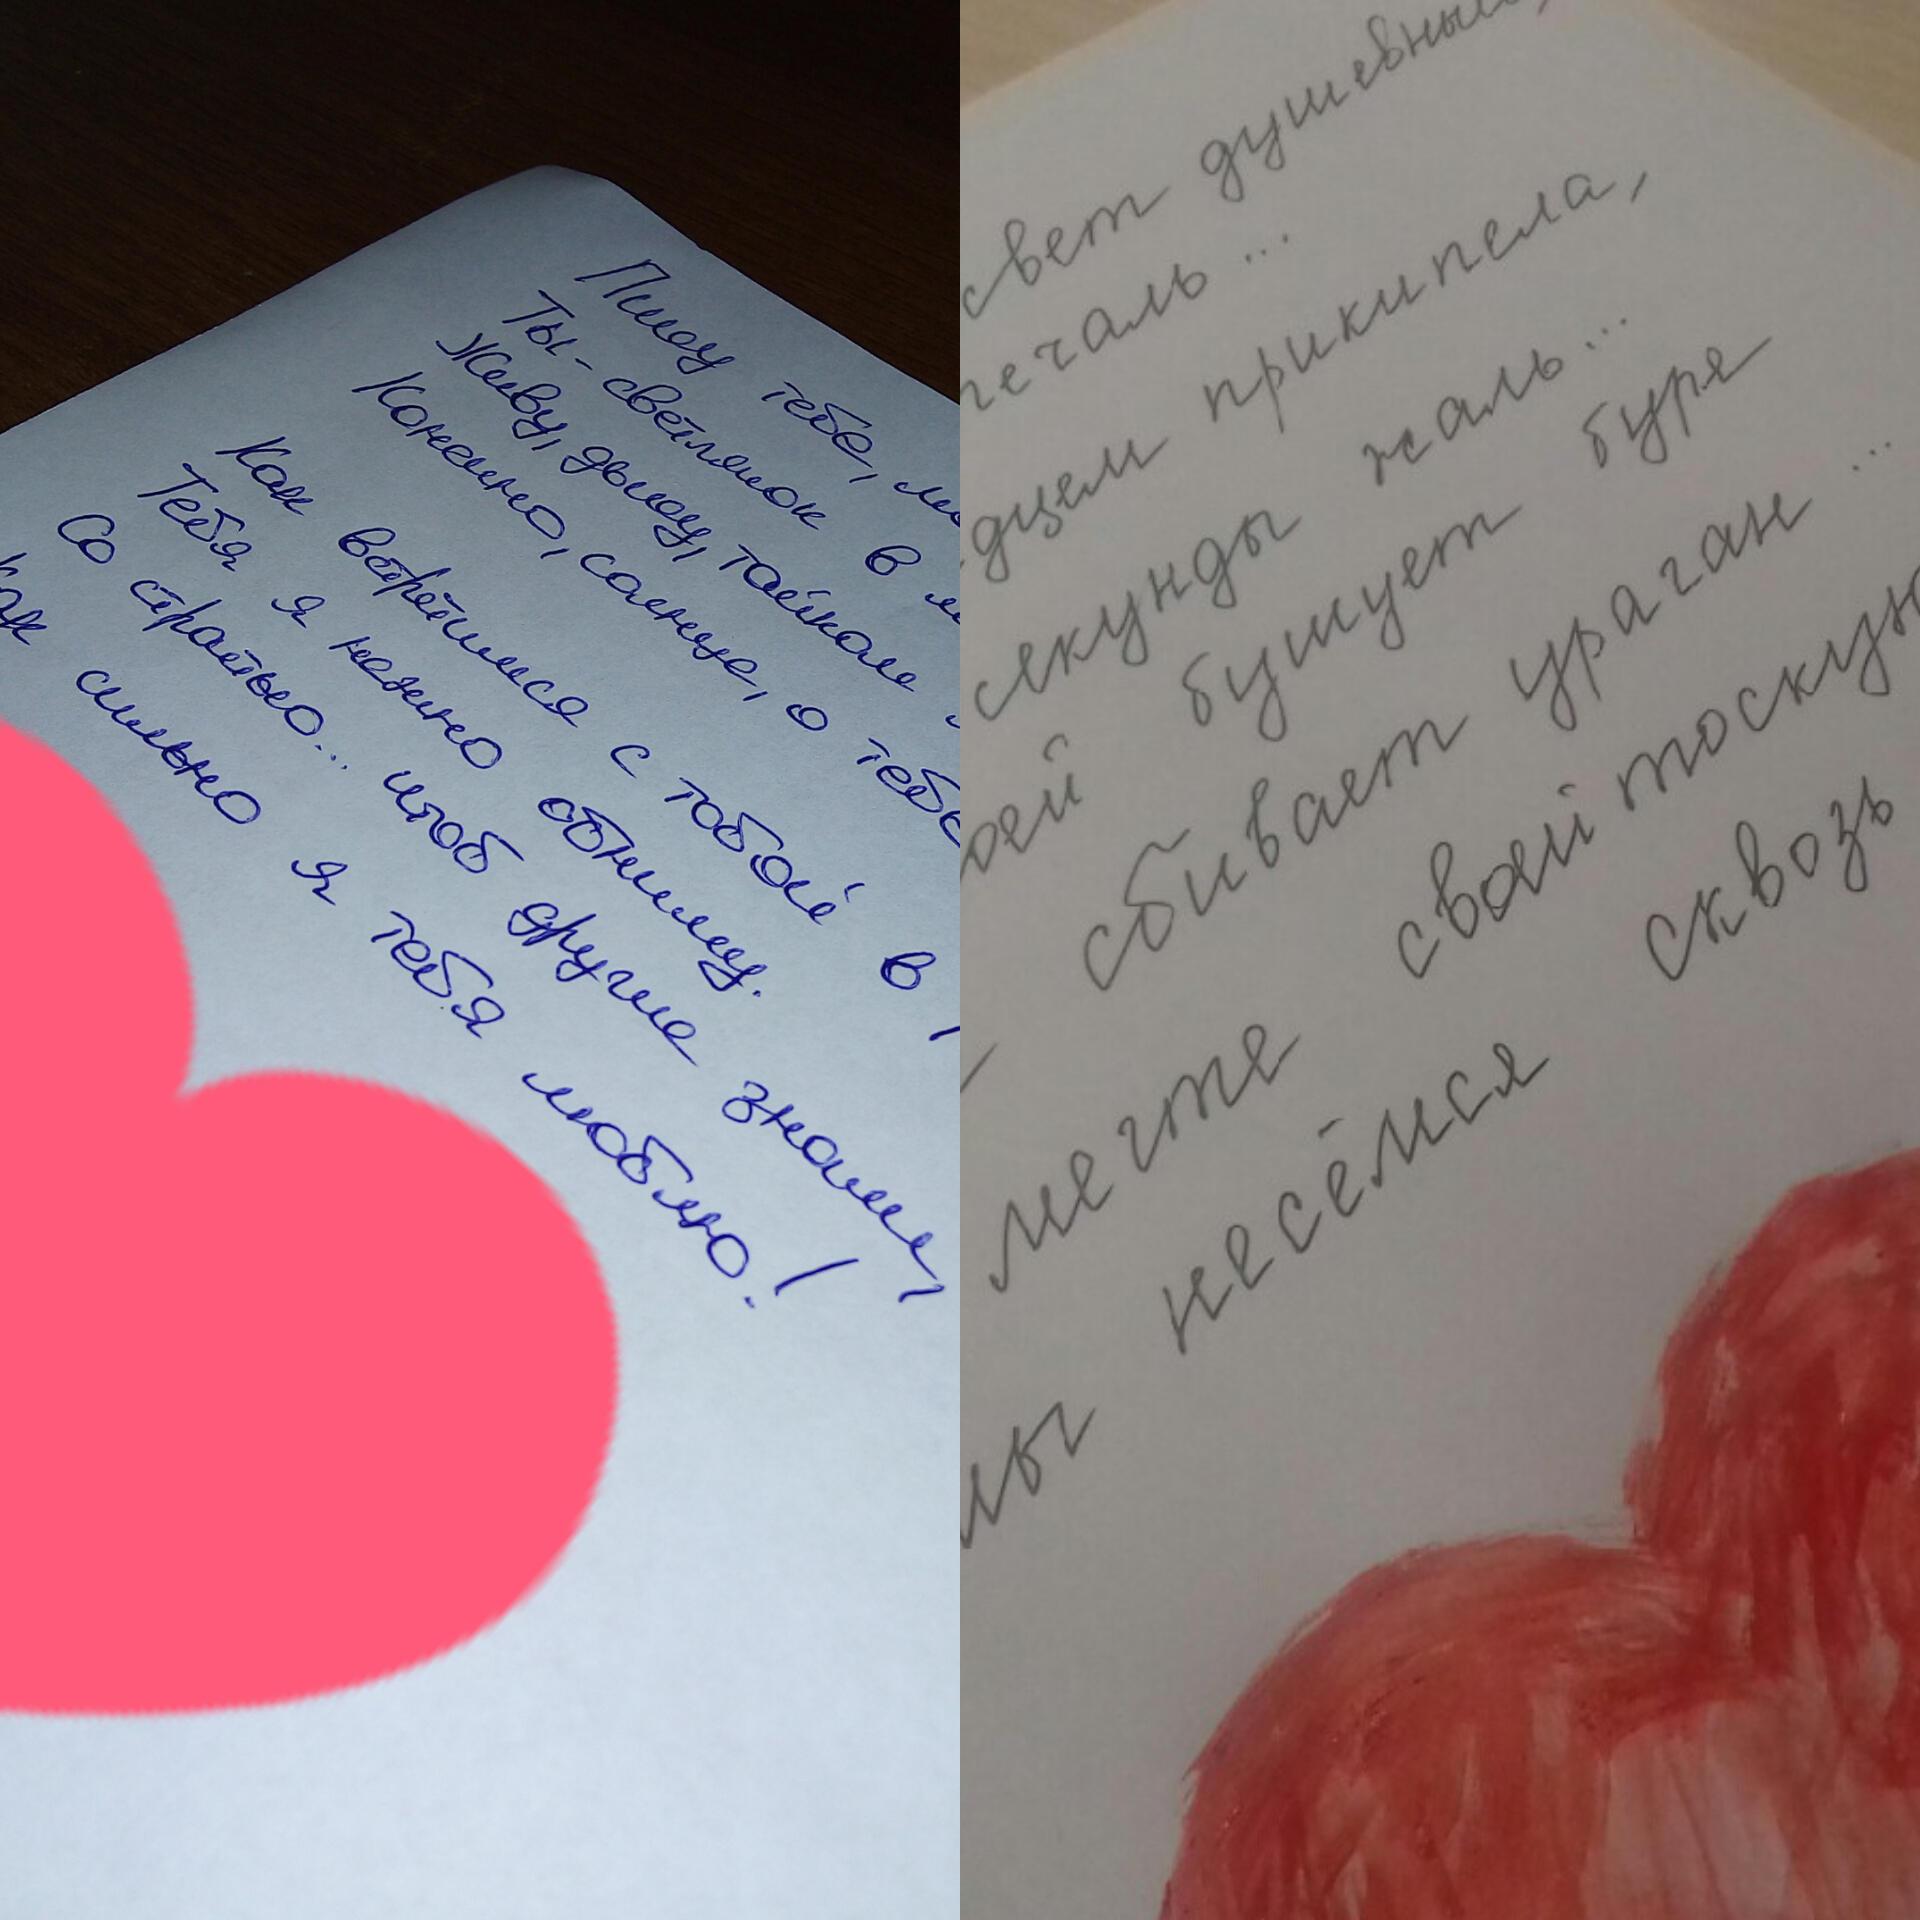 Пишу тебе,
Ты - светлячок в
Живу, дышу, тайком
Конечно, солнце, о тебе
Как встретимся с тобой в
Тебя я нежно обниму.
Со страстью... чтоб другие знали,
Как сильно я тебя люблю!
свет душевный,
печаль...
прикипела,
секунды жаль...
бушует буря
сбивает ураган...
мечте своей
мы несёмся сквозь